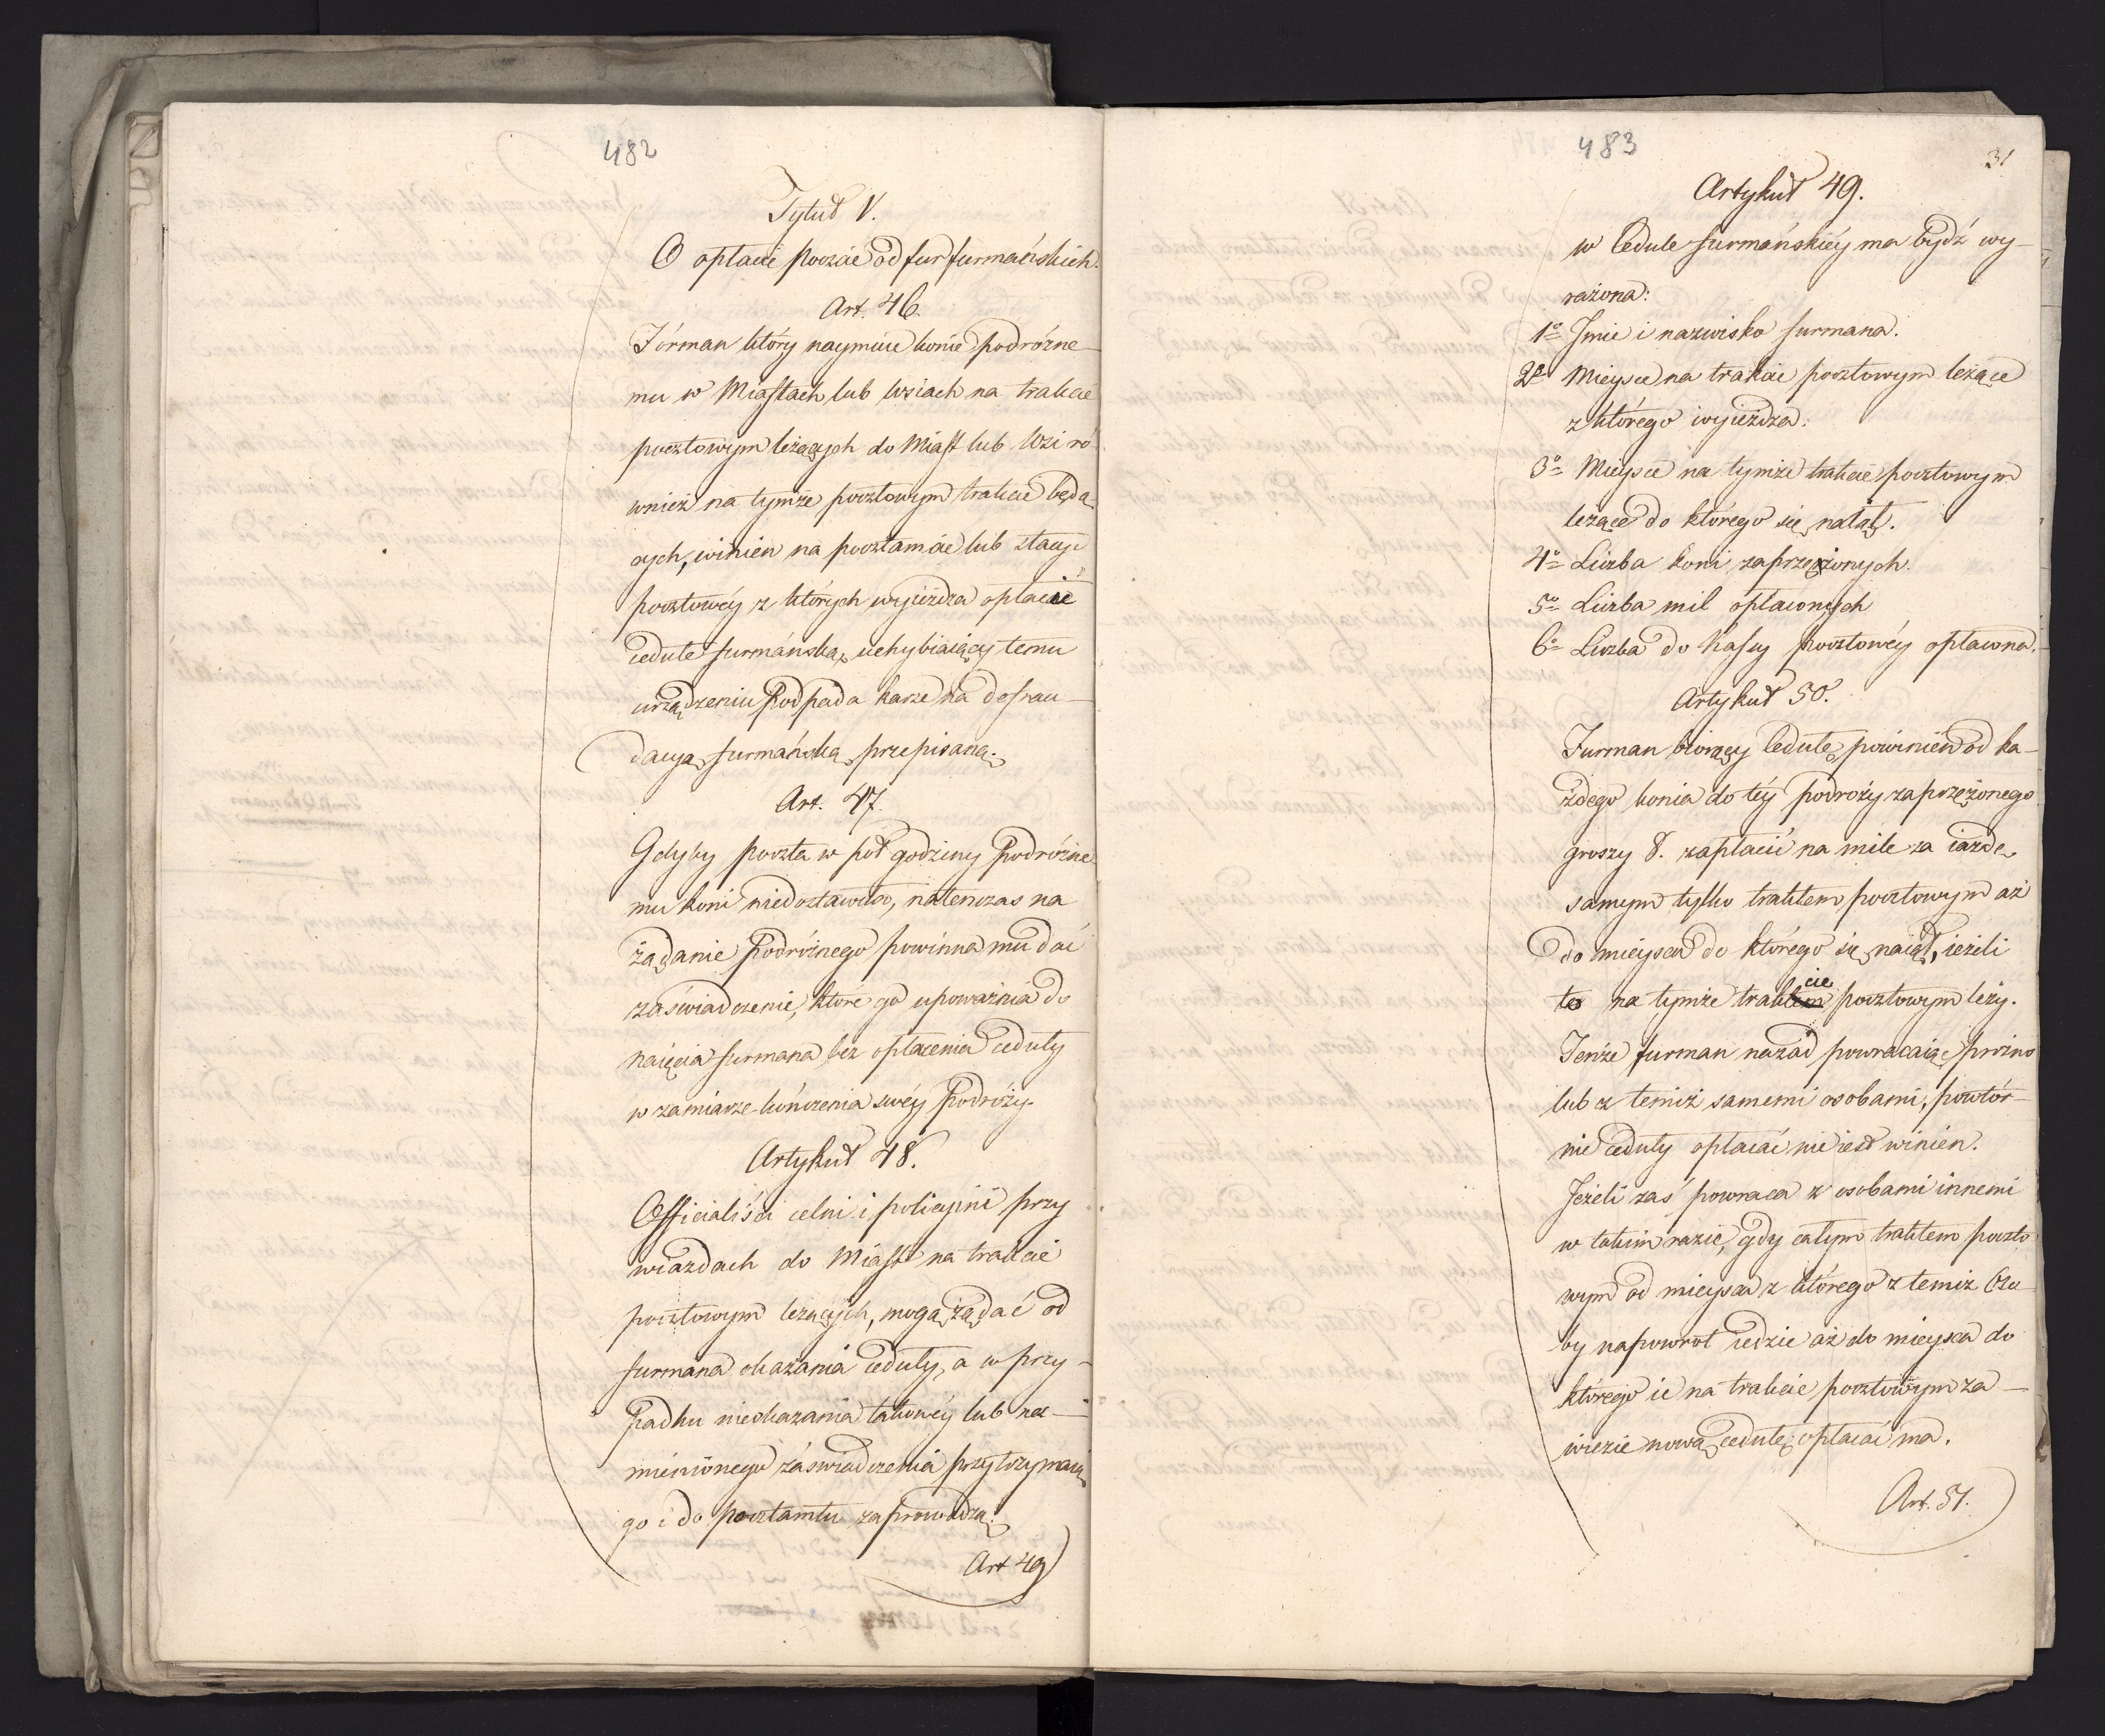 482
Tytuł V.
O opłacie poczcie od fur furmańskich.
Art. 46.
Fórman który naymuie konie podróżne-
mu w Miastach lub wsiach na trakcie
pocztowym leżących do Miast lub Wsi ró-
wnież na tymże pocztowym trakcie będą-
cych, winien na pocztamcie lub stacyi
pocztowéy z których wyieżdza opłacić
cedułę furmańską, uchybiaiący temu
urządzeniu podpada karze na defrau-
dacyą furmańską przepisaną.
Art. 47.
Gdyby poczta w pół godziny Podróżne-
mu koni niedostawiła, natenczas na
żądanie Podróżnego powinna mu dać
zaświadczenie, które go upoważnia do
naięcia furmana bez opłacenia ceduły
w zamiarze kończenia swéy Podróży.
Artykuł 48.
Officialiści celni i policyini przy
wiazdach do Miast na trakcie
pocztowym leżących, mogą żądać od
furmana okazania ceduły, a w przy-
padku nieokazania takowéy lub na-
mienionego zaświadczenia przytrzymaią
go i do pocztamtu zaprowadzą.
Art 49
483
31
Artykuł 49.
w Cedule furmańskiéy ma bydź wy-
rażona:
1o Jmie i nazwisko furmana.
2o Mieysce na trakcie pocztowym leżące
z którego wyieżdza.
3o Mieysce na tymże trakcie pocztowym
leżące do którego się naiął.
4o Liczba koni zaprzężonych.
5o Liczba mil opłaconych
6o Liczba do Kassy pocztowéy opłacona.
Artykuł 50.
Furman biorący Cedułę, powinien od ka-
żdego konia do téy podroży zaprzężonego
groszy 8. zapłacić na mile za iazdę
samym tylko traktem pocztowym aż
do mieysca do którego się naiął, ieżeli
to na tymże trakcie pocztowym leży.
Tenże furman nazad powracaiąc prózno
lub z temiż samemi osobami, powtór-
nie ceduły opłacać nie iest winien.
Jeżeli zaś powraca z osobami innemi
w takim razie, gdy całym traktem poczto-
wym od mieysca z którego z temiż Oso-
by napowrót iedzie aż do mieysca do
którego ie na trakcie pocztowym za-
wiezie nową cedułę opłacać ma.
Art. 51.